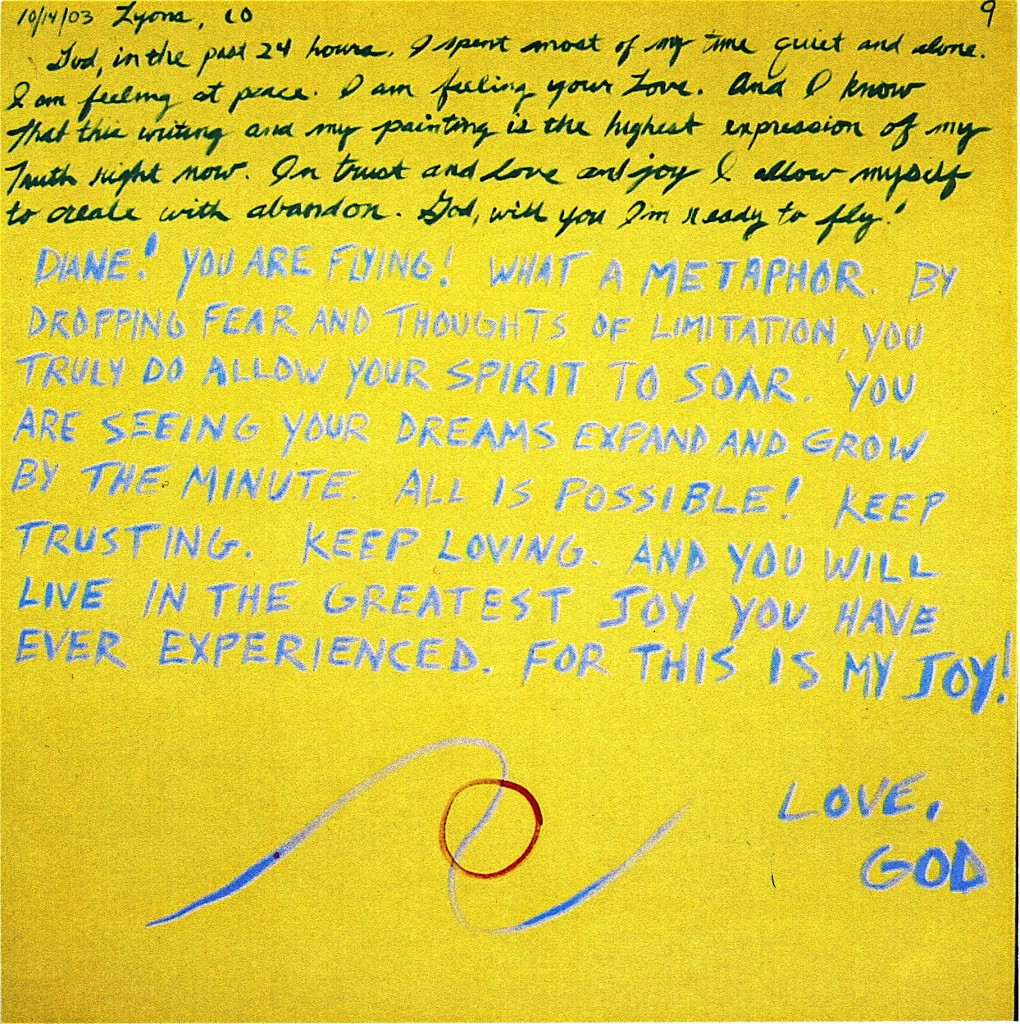 10/14/03 Lyons, CO 9
God, in the past 24 hours, I spent most of my time quiet and alone.
I am feeling at peace. I am feeling your Love. And I know
that this writing and my painting is the highest expression of my
Truth right now. In trust and love and joy I allow myself
to create with abandon. God, with you I'm ready to fly!
DIANE! YOU ARE FLYING! WHAT A METAPHOR. BY
DROPPING FEAR AND THOUGHTS OF LIMITATION, YOU
TRULY DO ALLOW YOUR SPIRIT TO SOAR. YOU
ARE SEEING YOUR DREAMS EXPAND AND GROW
BY THE MINUTE. ALL IS POSSIBLE! KEEP
TRUSTING. KEEP LOVING. AND YOU WILL
LIVE IN THE GREATEST JOY YOU HAVE
EVER EXPERIENCED. FOR THIS IS MY JOY!
LOVE,
GOD